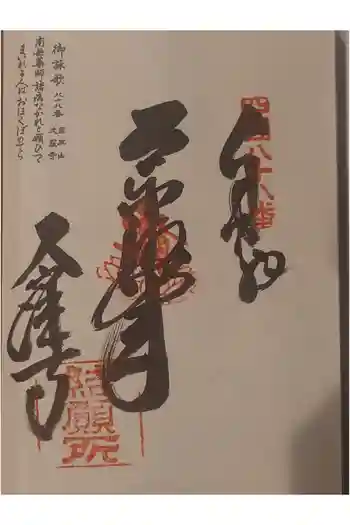 四国八十八番
奉納
大窪寺
結願所
御詠歌 八十八番 医王山 大窪寺
南無薬師諸病なかれと願ひつつ
まいれる人はおほくぼのてら